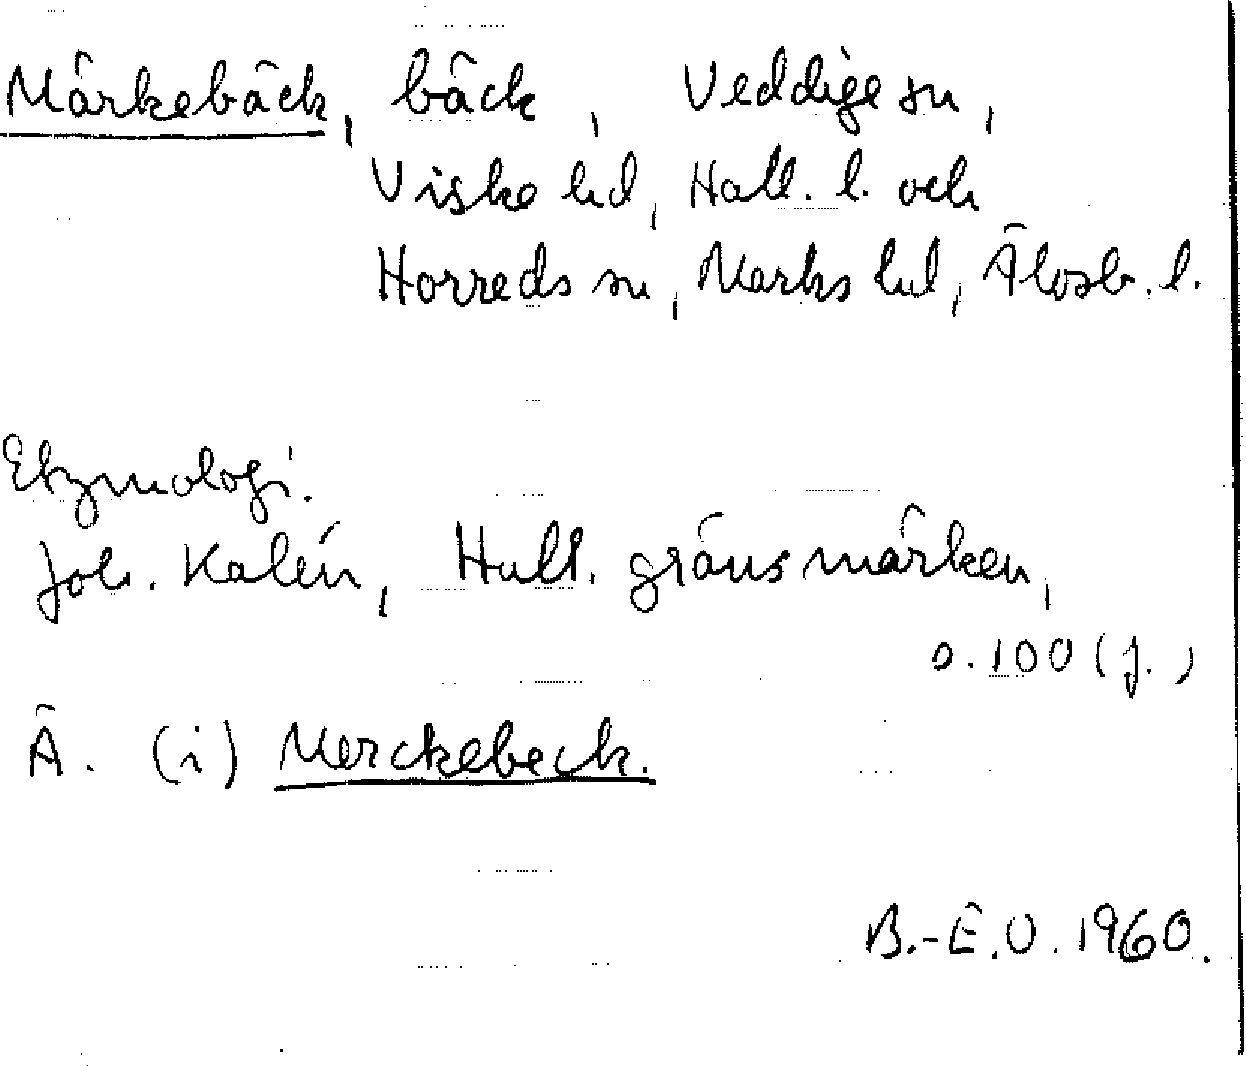 Märkebäck, bäck, Veddige sn,
Viske hd, Hall. l. och
Horreds sn, Marks hd, Älvsb. l.
Etymologi.
Joh. Kalén, Hall. gränsmärken,
s. 100 (f.)
Ä. (i) Merckebeck.
B.-E.O. 1960.